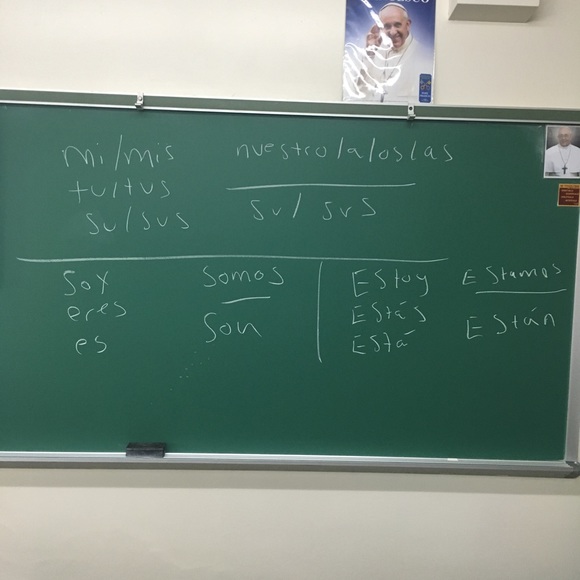 mi/mis nuestro/a/os/as
tu/tus
su/sus su/ sus
Soy Somos Estoy Estamos
eres Estás
es Son Está Están